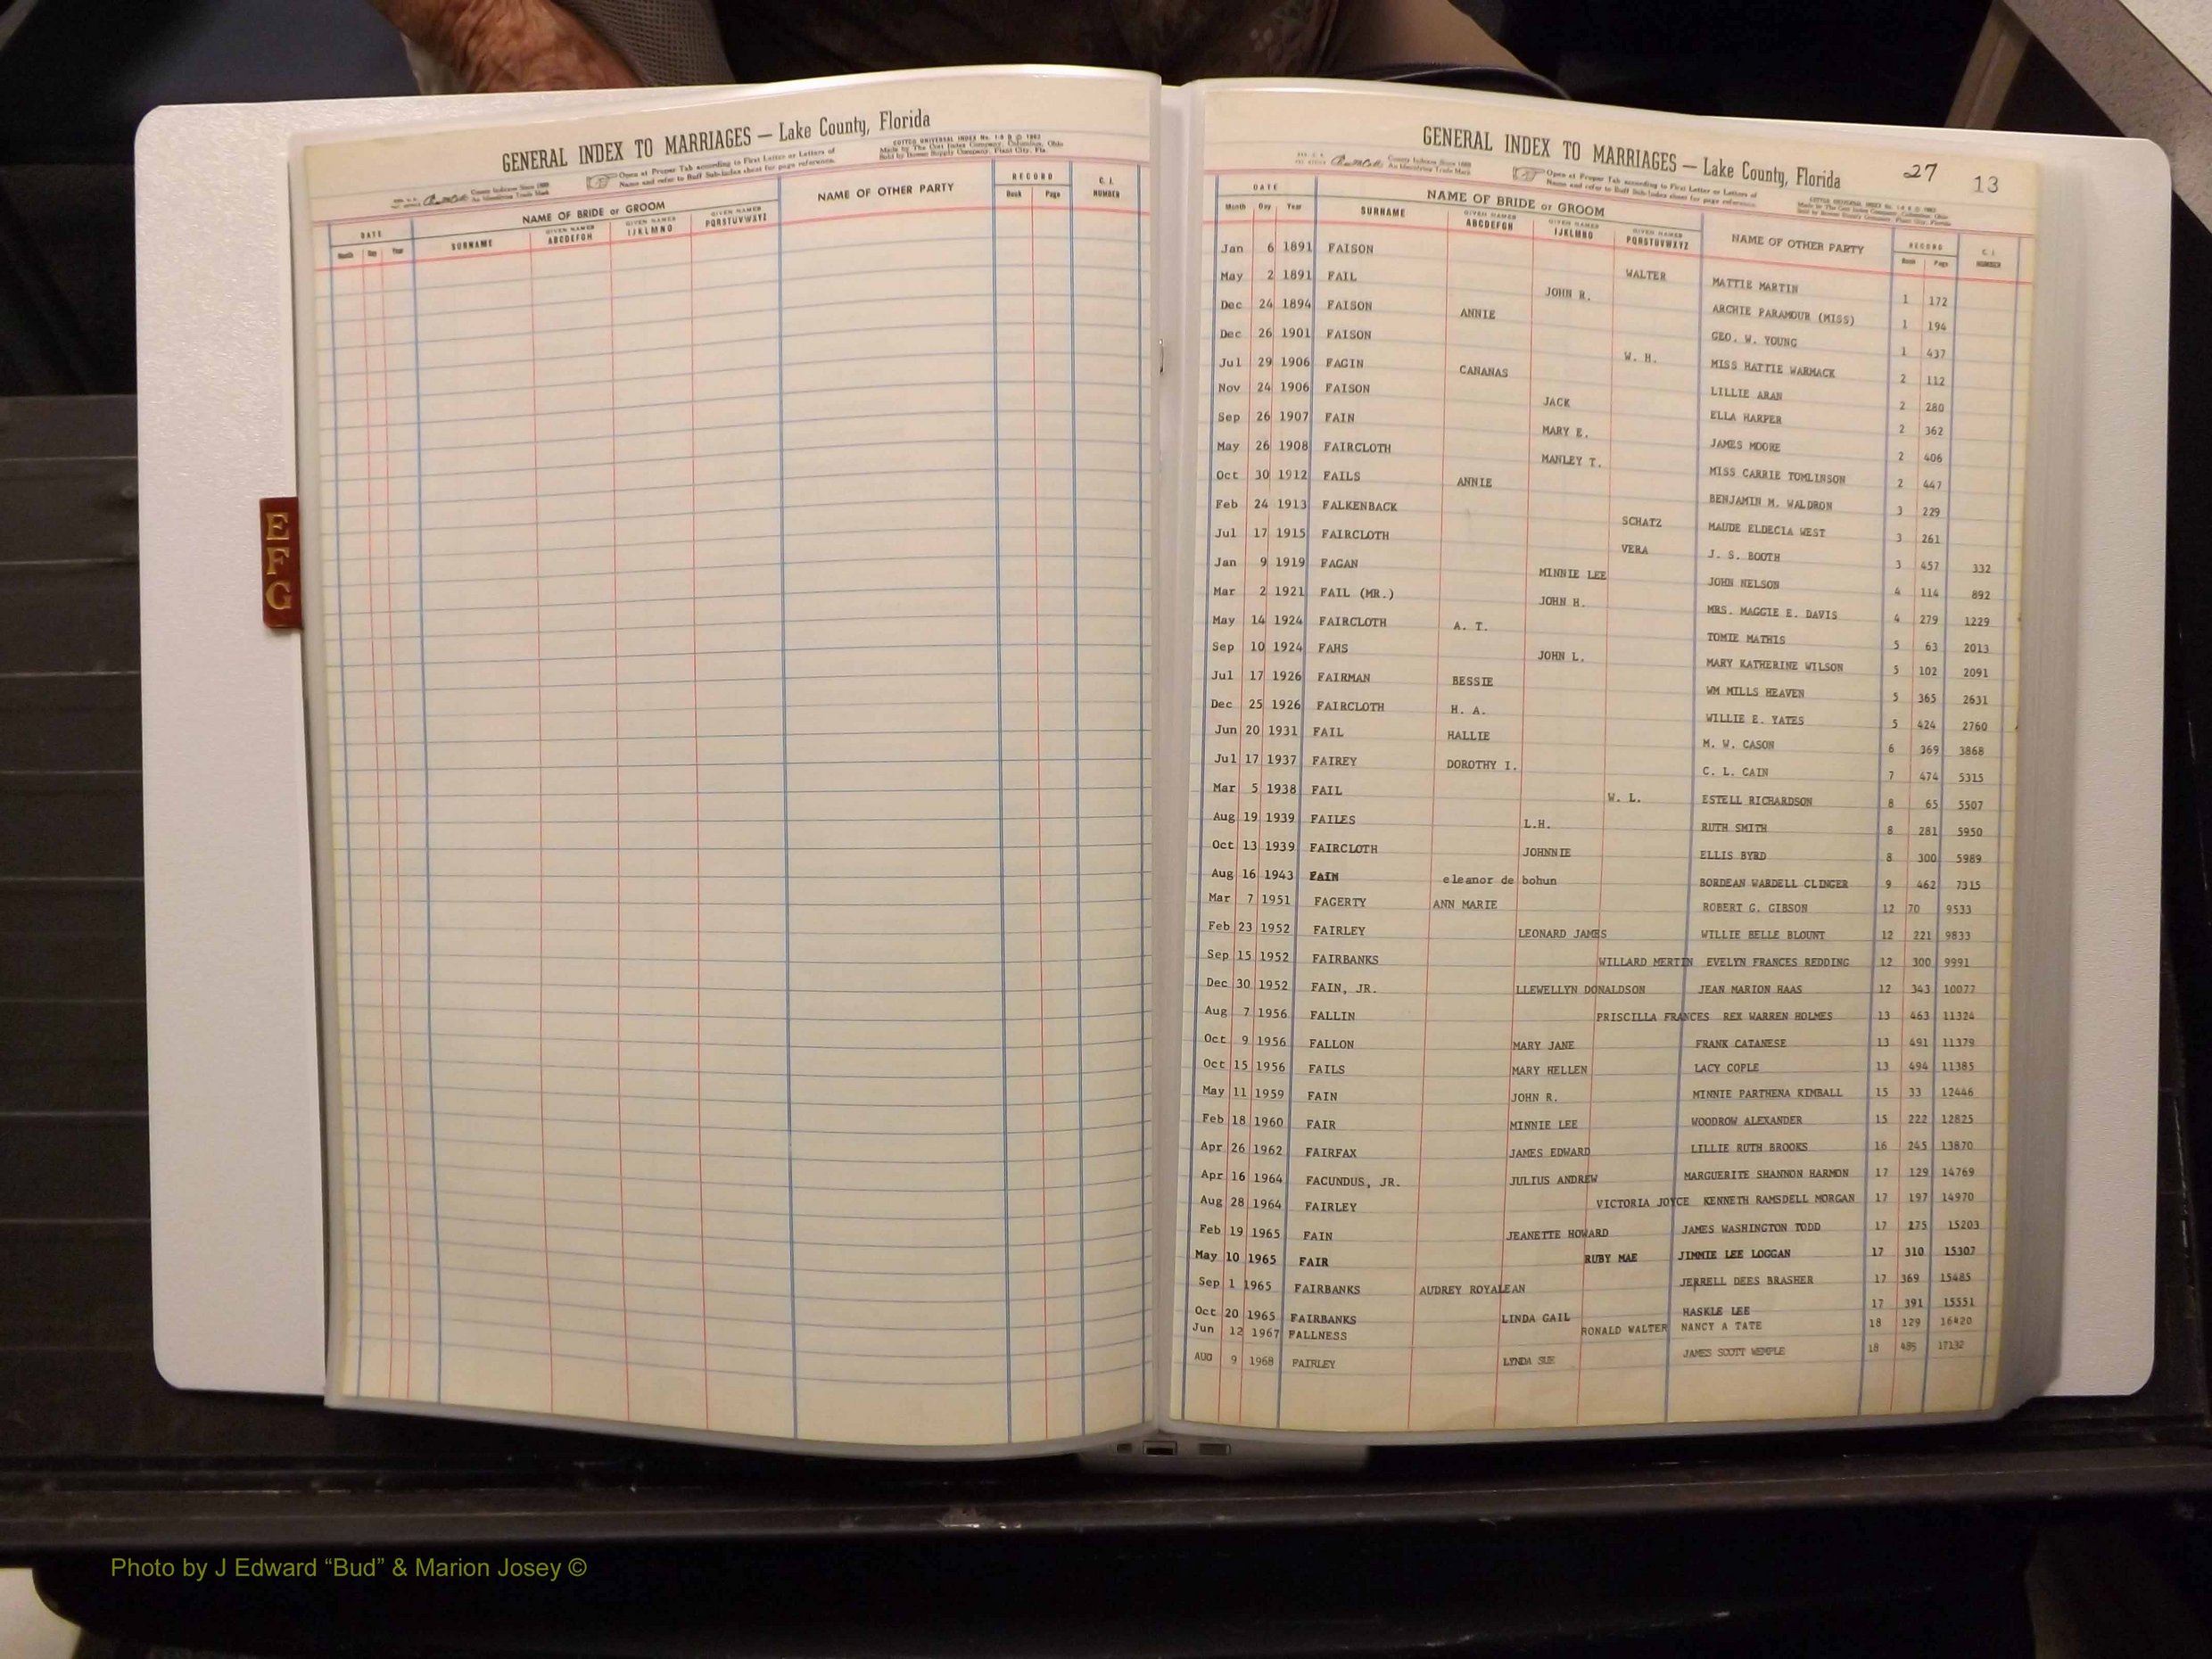 GENERAL INDEX TO MARRIAGES — Lake County, Florida
COTT'S UNIVERSAL INDEX No. 1-S B © 1962
Made by The Cott Index Company, Columbus, Ohio
Open at Proper Tab according to First Letter or Letters of
Name and refer to Buff Sub-Index sheet for page reference.
County Indexes Since 1888
An Identifying Trade Mark
DATE NAME OF BRIDE or GROOM NAME OF OTHER PARTY RECORD C. I. NUMBER
Month Day Year SURNAME GIVEN NAMES ABCDEFGH GIVEN NAMES IJKLMNO GIVEN NAMES PQRSTUVWXYZ Book Page
E
F
G
GENERAL INDEX TO MARRIAGES — Lake County, Florida 27 13
County Indexes Since 1888
An Identifying Trade Mark
Open at Proper Tab according to First Letter or Letters of
Name and refer to Buff Sub-Index sheet for page reference.
DATE NAME OF BRIDE or GROOM NAME OF OTHER PARTY RECORD C. I. NUMBER
Month Day Year SURNAME GIVEN NAMES ABCDEFGH GIVEN NAMES IJKLMNO GIVEN NAMES PQRSTUVWXYZ Book Page
Jan 6 1891 FAISON WALTER MATTIE MARTIN 1 172
May 2 1891 FAIL JOHN R. ARCHIE PARAMOUR (MISS) 1 194
Dec 24 1894 FAISON ANNIE GEO. W. YOUNG 1 437
Dec 26 1901 FAISON W. H. MISS HATTIE WARMACK 2 112
Jul 29 1906 FAGIN CANANAS LILLIE ARAN 2 280
Nov 24 1906 FAISON JACK ELLA HARPER 2 362
Sep 26 1907 FAIN MARY E. JAMES MOORE 2 406
May 26 1908 FAIRCLOTH MANLEY T. MISS CARRIE TOMLINSON 2 447
Oct 30 1912 FAILS ANNIE BENJAMIN M. WALDRON 3 229
Feb 24 1913 FALKENBACK SCHATZ MAUDE ELDECIA WEST 3 261
Jul 17 1915 FAIRCLOTH VERA J. S. BOOTH 3 457 332
Jan 9 1919 FAGAN MINNIE LEE JOHN NELSON 4 114 892
Mar 2 1921 FAIL (MR.) JOHN H. MRS. MAGGIE E. DAVIS 4 279 1229
May 14 1924 FAIRCLOTH A. T. TOMIE MATHIS 5 63 2013
Sep 10 1924 FAHS JOHN L. MARY KATHERINE WILSON 5 102 2091
Jul 17 1926 FAIRMAN BESSIE WM MILLS HEAVEN 5 365 2631
Dec 25 1926 FAIRCLOTH H. A. WILLIE E. YATES 5 424 2760
Jun 20 1931 FAIL HALLIE M. W. CASON 6 369 3868
Jul 17 1937 FAIREY DOROTHY I. C. L. CAIN 7 474 5315
Mar 5 1938 FAIL W. L. ESTELL RICHARDSON 8 65 5507
Aug 19 1939 FAILES L.H. RUTH SMITH 8 281 5950
Oct 13 1939 FAIRCLOTH JOHNNIE ELLIS BYRD 8 300 5989
Aug 16 1943 FAIN eleanor de bohun BORDEAN WARDELL CLINGER 9 462 7315
Mar 7 1951 FAGERTY ANN MARIE ROBERT G. GIBSON 12 70 9533
Feb 23 1952 FAIRLEY LEONARD JAMES WILLIE BELLE BLOUNT 12 221 9833
Sep 15 1952 FAIRBANKS WILLARD MERTIN EVELYN FRANCES REDDING 12 300 9991
Dec 30 1952 FAIN, JR. LLEWELLYN DONALDSON JEAN MARION HAAS 12 343 10077
Aug 7 1956 FALLIN PRISCILLA FRANCES REX WARREN HOLMES 13 463 11324
Oct 9 1956 FALLON MARY JANE FRANK CATANESE 13 491 11379
Oct 15 1956 FAILS MARY HELLEN LACY COPLE 13 494 11385
May 11 1959 FAIN JOHN R. MINNIE PARTHENA KIMBALL 15 33 12446
Feb 18 1960 FAIR MINNIE LEE WOODROW ALEXANDER 15 222 12825
Apr 26 1962 FAIRFAX JAMES EDWARD LILLIE RUTH BROOKS 16 245 13870
Apr 16 1964 FACUNDUS, JR. JULIUS ANDREW MARGUERITE SHANNON HARMON 17 129 14769
Aug 28 1964 FAIRLEY VICTORIA JOYCE KENNETH RAMSDELL MORGAN 17 197 14970
Feb 19 1965 FAIN JEANETTE HOWARD JAMES WASHINGTON TODD 17 275 15203
May 10 1965 FAIR RUBY MAE JIMMIE LEE LOGGAN 17 310 15307
Sep 1 1965 FAIRBANKS AUDREY ROYALEAN JERRELL DEES BRASHER 17 369 15485
Oct 20 1965 FAIRBANKS LINDA GAIL HASKLE LEE 17 391 15551
Jun 12 1967 FALLNESS RONALD WALTER NANCY A TATE 18 129 16420
AUG 9 1968 FAIRLEY LYNDA SUE JAMES SCOTT WEMPLE 18 485 17132
Photo by J Edward “Bud” & Marion Josey ©